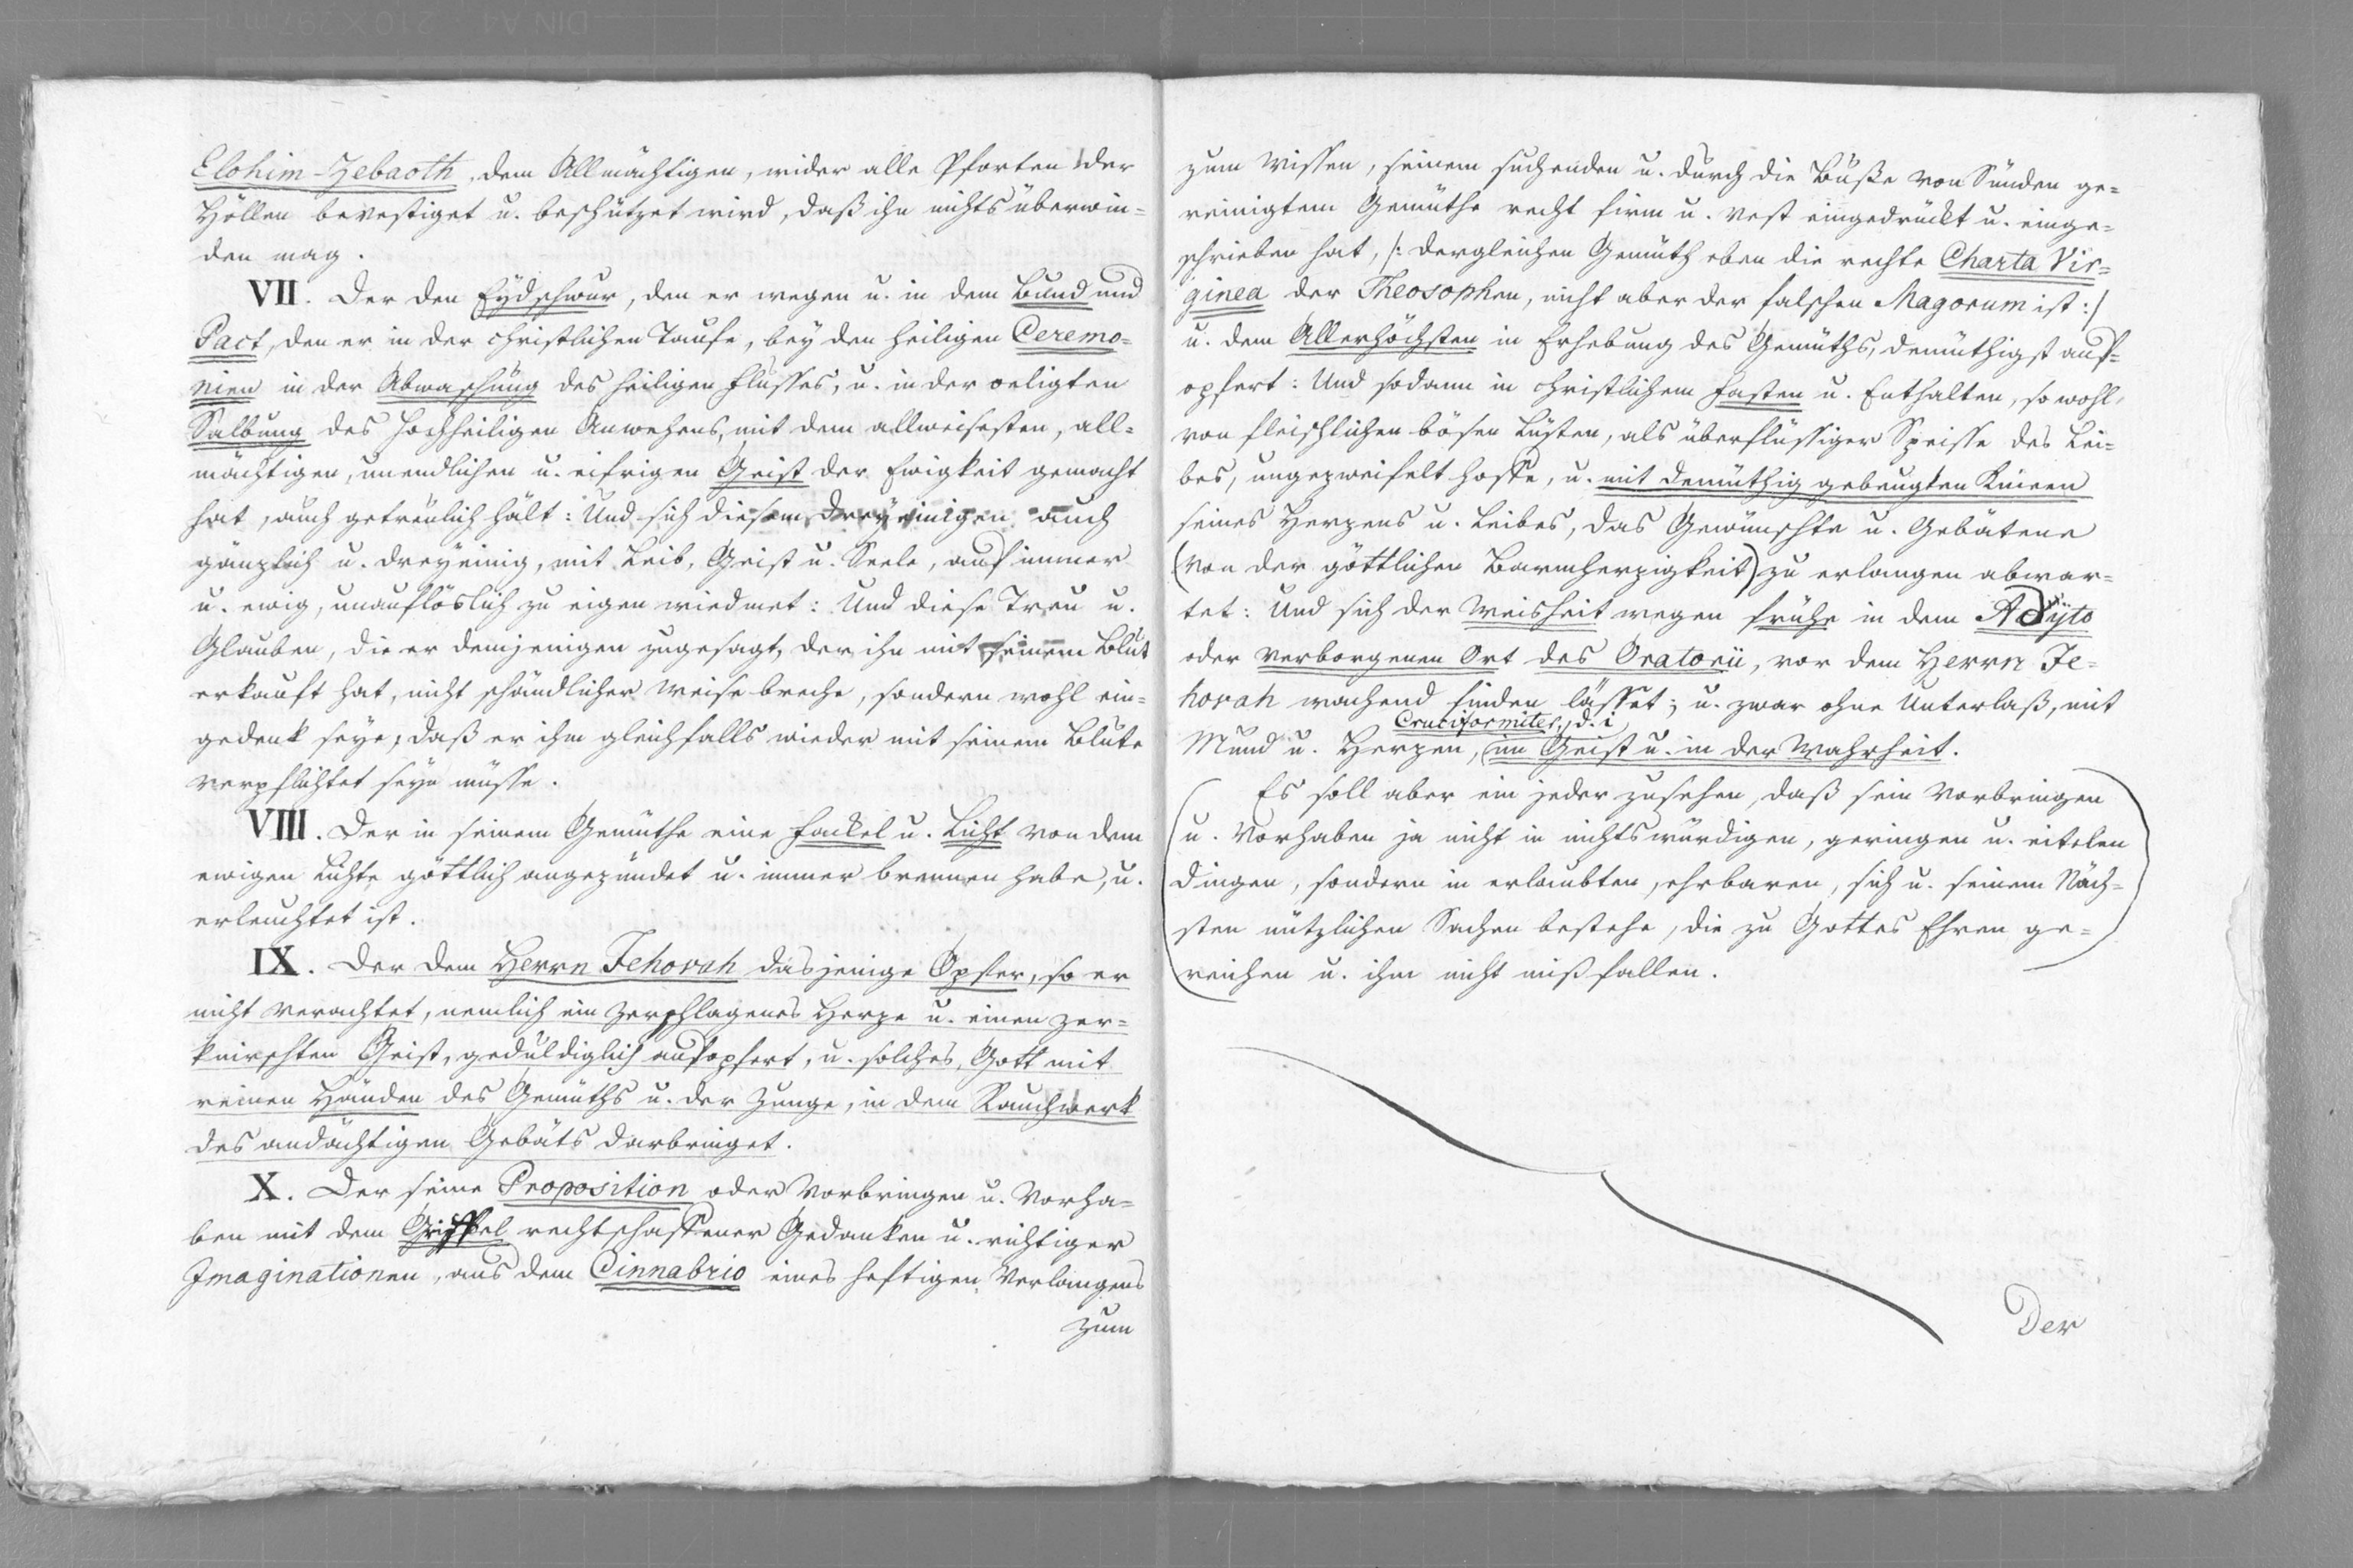 Elohim-Zebaoth, dem Allmächtigen, wider alle Pforten der
Höllen bevestiget u. beschützet wird, daß ihn nichts überwin=
den mag.
VII. Der den Eydschwur, den er wegen u. in dem Bund und
Pact, den er in der christlichen Taufe, bey den heiligen Ceremo=
nien in der Abwaschung des heiligen Flusses, u. in der oeligten
Salbung des hochheiligen Anwehens, mit dem allweisesten, all=
mächtigen, unendlichen u. eifrigen Geist der Ewigkeit gemacht
hat, auch getreülich hält: Und sich diesem dreyeinigen auch
gänzlich u. dreyeinig, mit Leib, Geist u. Seele, auf immer
u. ewig, unauflöslich zu eigen wiedmet: Und diese Treu u.
Glauben, die er demjenigen zugesagt, der ihn mit seinem Blut
erkauft hat, nicht schändlicher Weise breche, sondern wohl ein=
gedenk seye, daß er ihm gleichfalls wieder mit seinem Blute
verpflichtet seyn müsse.
VIII. Der in seinem Gemüthe eine Fackel u. Licht von dem
ewigen Lichte göttlich angezündet u. immer brennen habe, u.
erleuchtet ist.
IX. Der dem Herrn Jehovah dasjenige Opfer, so er
nicht verachtet, nemlich ein zerschlagenes Herze u. einen zer=
knirschten Geist, geduldiglich aufopfert, u. solches, Gott mit
reinen Händen des Gemüths u. der Zunge, in dem Rauchwerk
des andächtigen Gebäts darbringet.
X. Der seine Proposition oder Vorbringen u. Vorha=
ben mit dem Griffel rechtschaffener Gedanken u. richtiger
Imaginationen, aus dem Cinnabrio eines heftigen Verlangens
zum
zum Wissen, seinem suchenden u. durch die Buße von Sünden ge=
reinigtem Gemüthe recht firm u. vest eingedrückt u. einge=
schrieben hat, /: dergleichen Gemüth eben die rechte Charta Vir=
ginea der Theosophen, nicht aber der falschen Magorum ist :/
u. dem Allerhöchsten in Erhebung des Gemüths, demüthigst auf=
opfert: Und sodann in christlichem Fasten u. Enthalten, so wohl
von fleischlichen bösen Lüsten, als überflüssiger Speisse des Lei=
bes, ungezweifelt hoffe, u. mit demüthig gebeugten Knieen
seines Herzens u. Leibes, das Gewünschte u. Gebätene
(von der göttlichen Barmherzigkeit) zu erlangen abwar=
tet: Und sich der Weisheit wegen frühe in dem Adÿto
oder verborgenen Ort des Oratorii, vor dem Herrn Je=
hovah wachend finden lässet; u. zwar ohne Unterlaß, mit
Cruciformiter, d. i
Mund u. Herzen, im Geist u. in der Wahrheit.
Es soll aber ein jeder zusehen, daß sein Vorbringen
u. Vorhaben ja nicht in nichtswürdigen, geringen u. eitelen
Dingen, sondern in erlaubten, ehrbaren, sich u. seinem Näch=
sten nützlichen Sachen bestehe, die zu Gottes Ehren ge=
reichen u. ihm nicht mißfallen.
Der